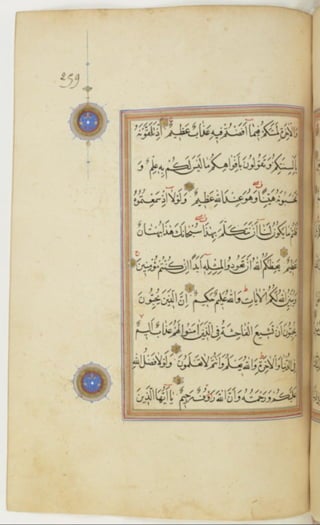 وَالْآخِرَةِ لَمَسَّكُمْ فِيمَا أَفَضْتُمْ فِيهِ عَذَابٌ عَظِيمٌ إِذْ تَلَقَّوْنَهُ
بِأَلْسِنَتِكُمْ وَتَقُولُونَ بِأَفْوَاهِكُمْ مَا لَيْسَ لَكُمْ بِهِ عِلْمٌ وَ
تَحْسَبُونَهُ هَيِّنًا وَهُوَ عِنْدَ اللَّهِ عَظِيمٌ وَلَوْلَا إِذْ سَمِعْتُمُوهُ
قُلْتُمْ مَا يَكُونُ لَنَا أَنْ نَتَكَلَّمَ بِهَذَا سُبْحَانَكَ هَذَا بُهْتَانٌ
عَظِيمٌ يَعِظُكُمُ اللَّهُ أَنْ تَعُودُوا لِمِثْلِهِ أَبَدًا إِنْ كُنْتُمْ مُؤْمِنِينَ
وَيُبَيِّنُ اللَّهُ لَكُمُ الْآيَاتِ وَاللَّهُ عَلِيمٌ حَكِيمٌ إِنَّ الَّذِينَ يُحِبُّونَ
يُحِبُّونَ أَنْ تَشِيعَ الْفَاحِشَةُ فِي الَّذِينَ آمَنُوا لَهُمْ عَذَابٌ أَلِيمٌ
فِي الدُّنْيَا وَالْآخِرَةِ وَاللَّهُ يَعْلَمُ وَأَنْتُمْ لَا تَعْلَمُونَ وَلَوْلَا فَضْلُ اللَّهِ
عَلَيْكُمْ وَرَحْمَتُهُ وَأَنَّ اللَّهَ رَؤُفٌ رَحِيمٌ يَا أَيُّهَا الَّذِينَ